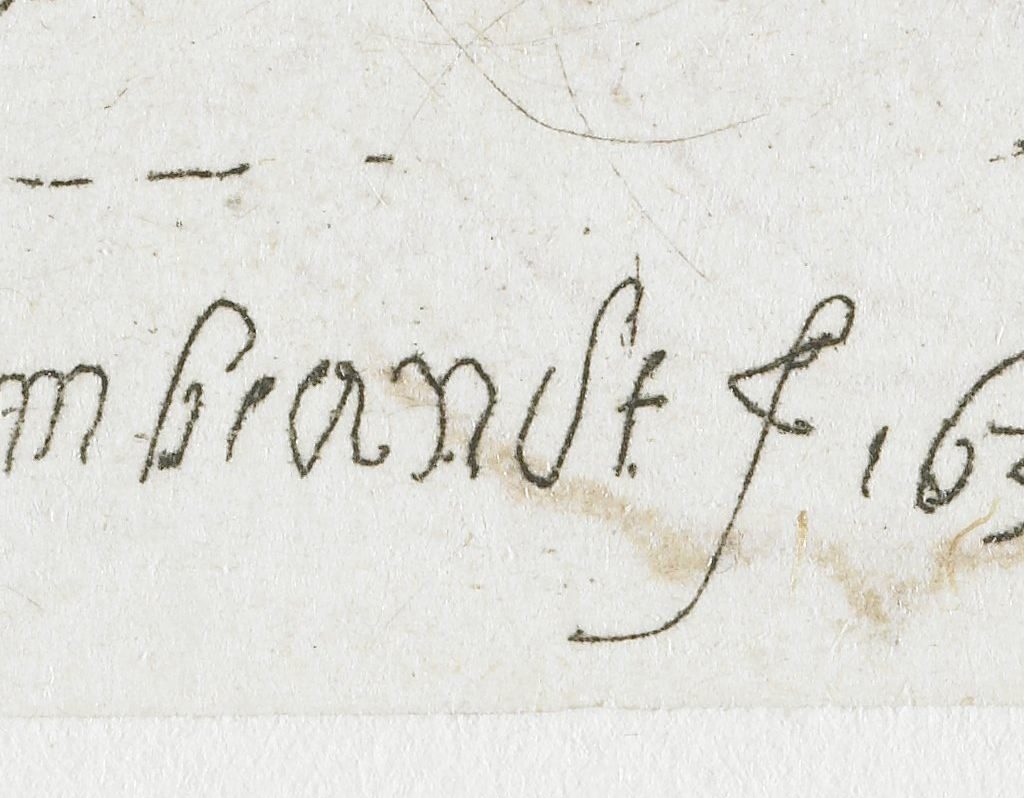 mbrandt f 163